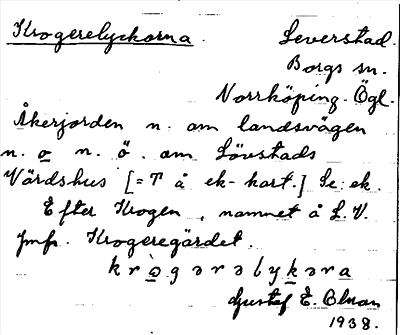 Krogerelyckorna. Leverstad.
Borgs sn.
Norrköping. Ögl.
Åkerjorden n. om landsvägen
n. o n. ö. om Lövstads
Värdshus [= T å ek-kart.] Se: ek.
Efter Krogen, namnet å L. V.
Jmfr. Krogeregärdet.
krògərəlykərna
Gustaf E. Olman
1938.